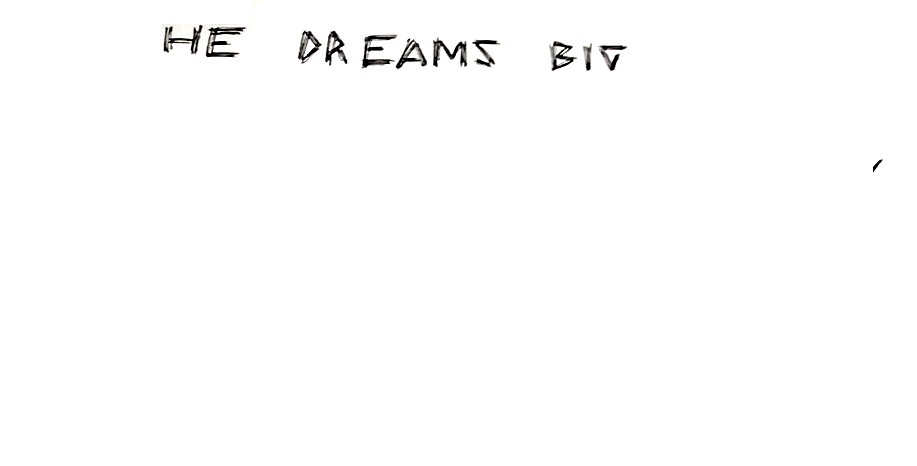 HE DREAMS BIG